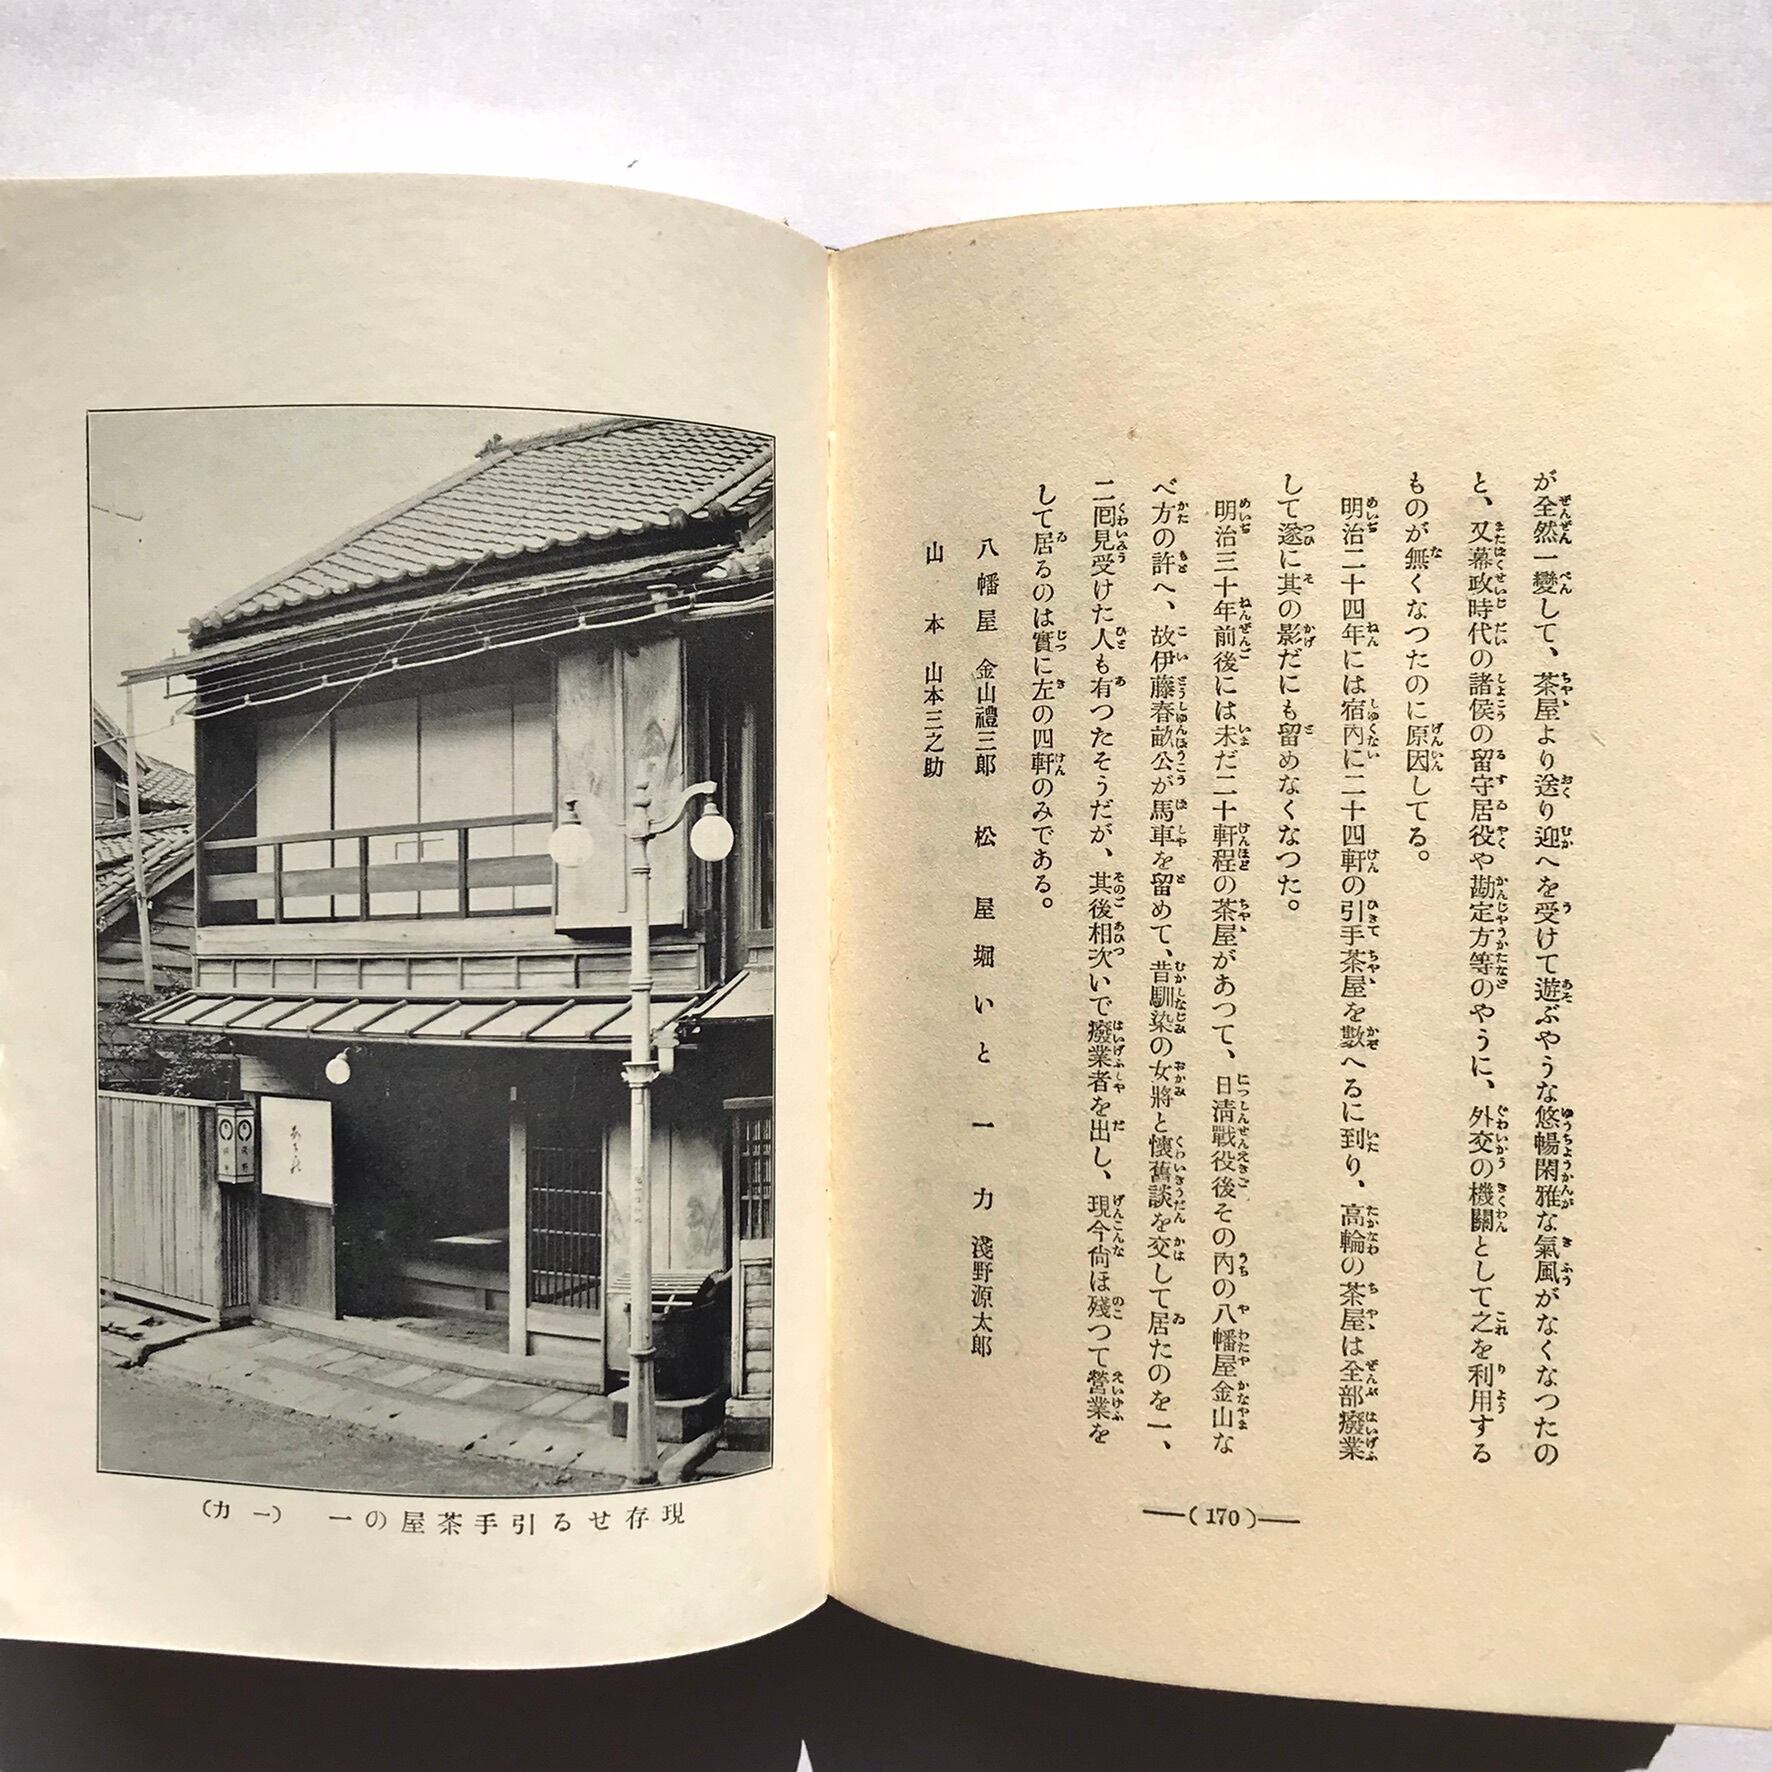 が全然一變して、茶屋より送り迎へを受けて遊ぶやうな悠暢閑雅な氣風がなくなつたの
と、又幕政時代の諸侯の留守居役や勘定方等のやうに、外交の機關として之を利用する
ものが無くなつたのに原因してる。
明治二十四年には宿内に二十四軒の引手茶屋を數へるに到り、高輪の茶屋は全部癈業
して遂に其の影だにも留めなくなつた。
明治三十年前後には未だ二十軒程の茶屋があつて、日淸戰役後その内の八幡屋金山な
べ方の許へ、故伊藤春畝公が馬車を留めて、昔馴染の女將と懷舊談を交して居たのを一、
二囘見受けた人も有つたそうだが、其後相次いで癈業者を出し、現今尙ほ殘つて營業を
して居るのは實に左の四軒のみである。
八幡屋 金山禮三郎 松屋 堀いと 一力 淺野源太郎
山本 山本三之助
―(170)―
現存せる引手茶屋の一 (一力)